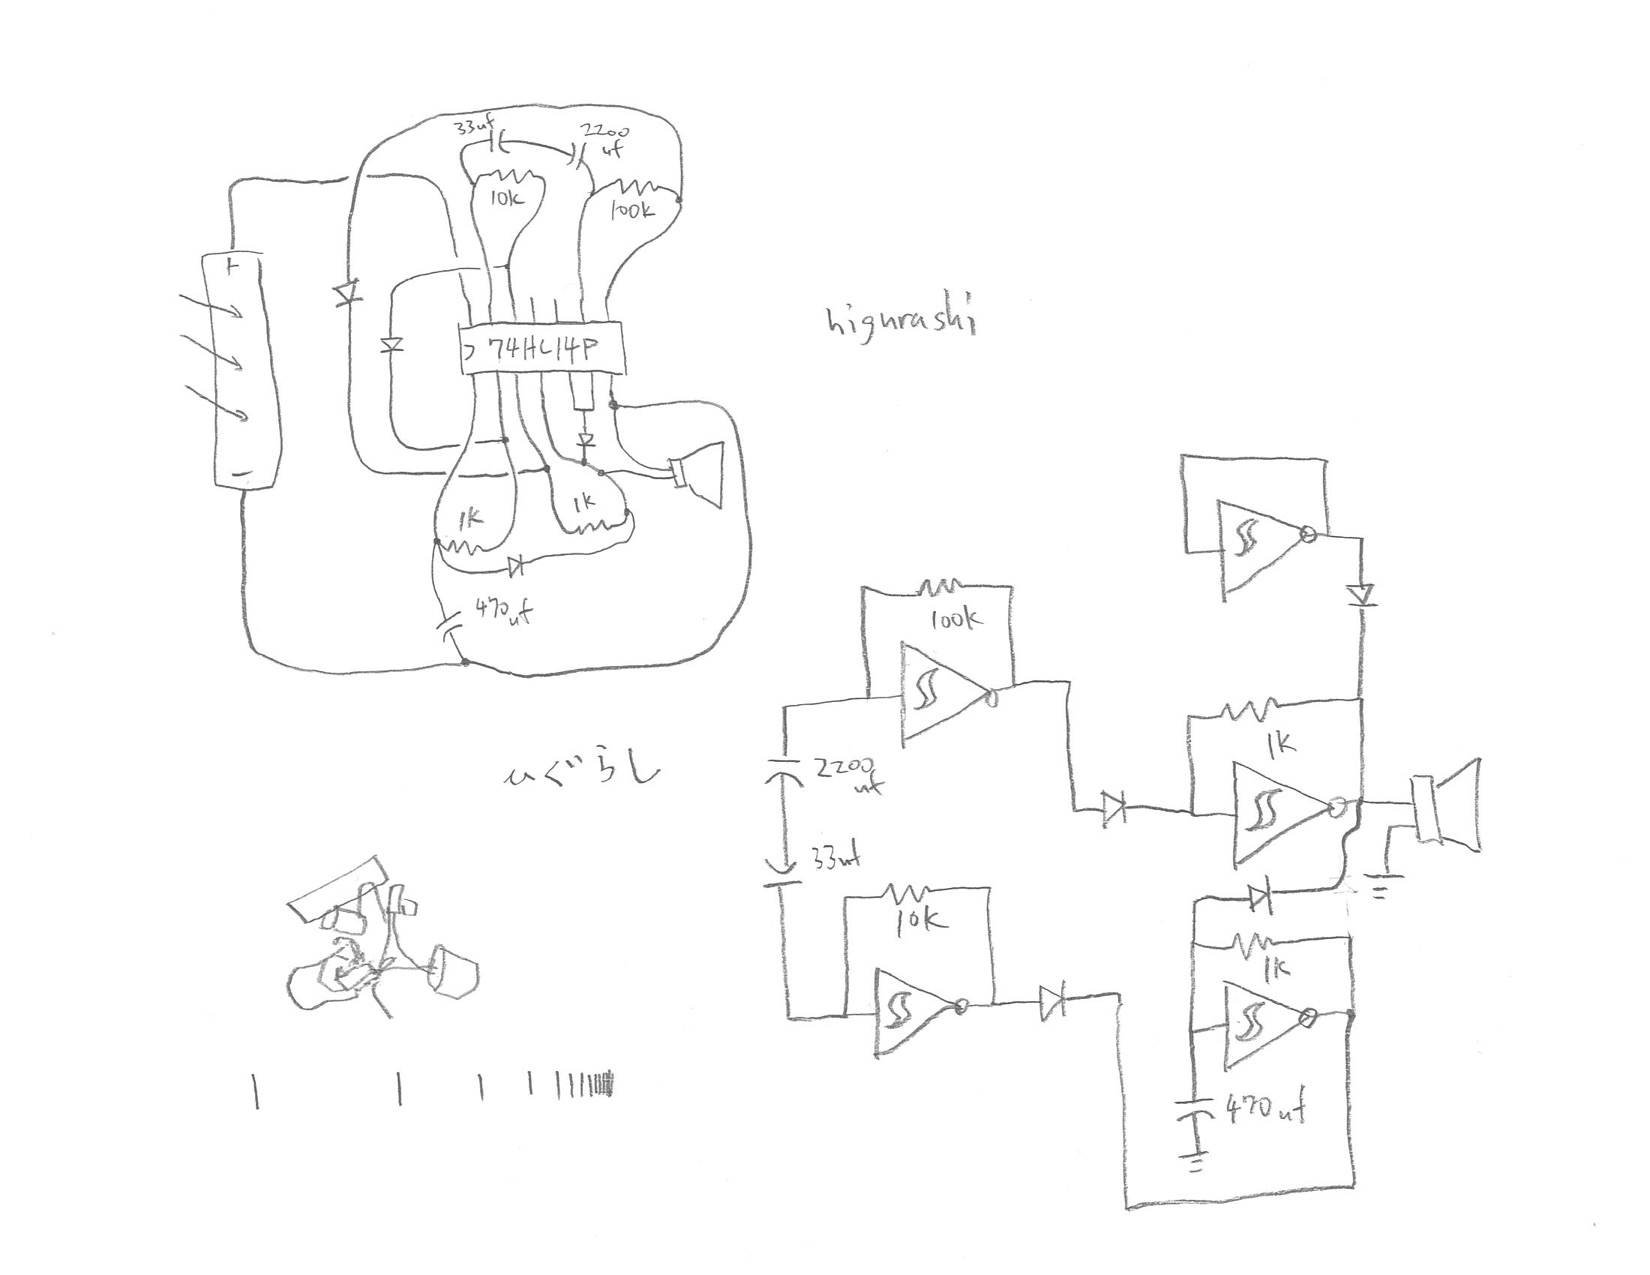 33uf
2200
uf
10k
100k
+
74HC14P
-
1k
1k
470uf
higurashi
ひぐらし
100k
2200
uf
33uf
10k
1k
1k
470uf